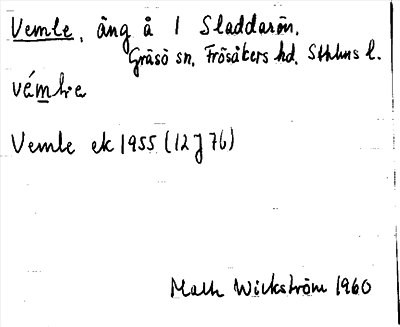 Vemle, äng å 1 Sladdarön,
Gräsö sn, Frösåkers hd, Sthlms l.
Vemle ek 1955 (12J76)
Math Wickström 1960